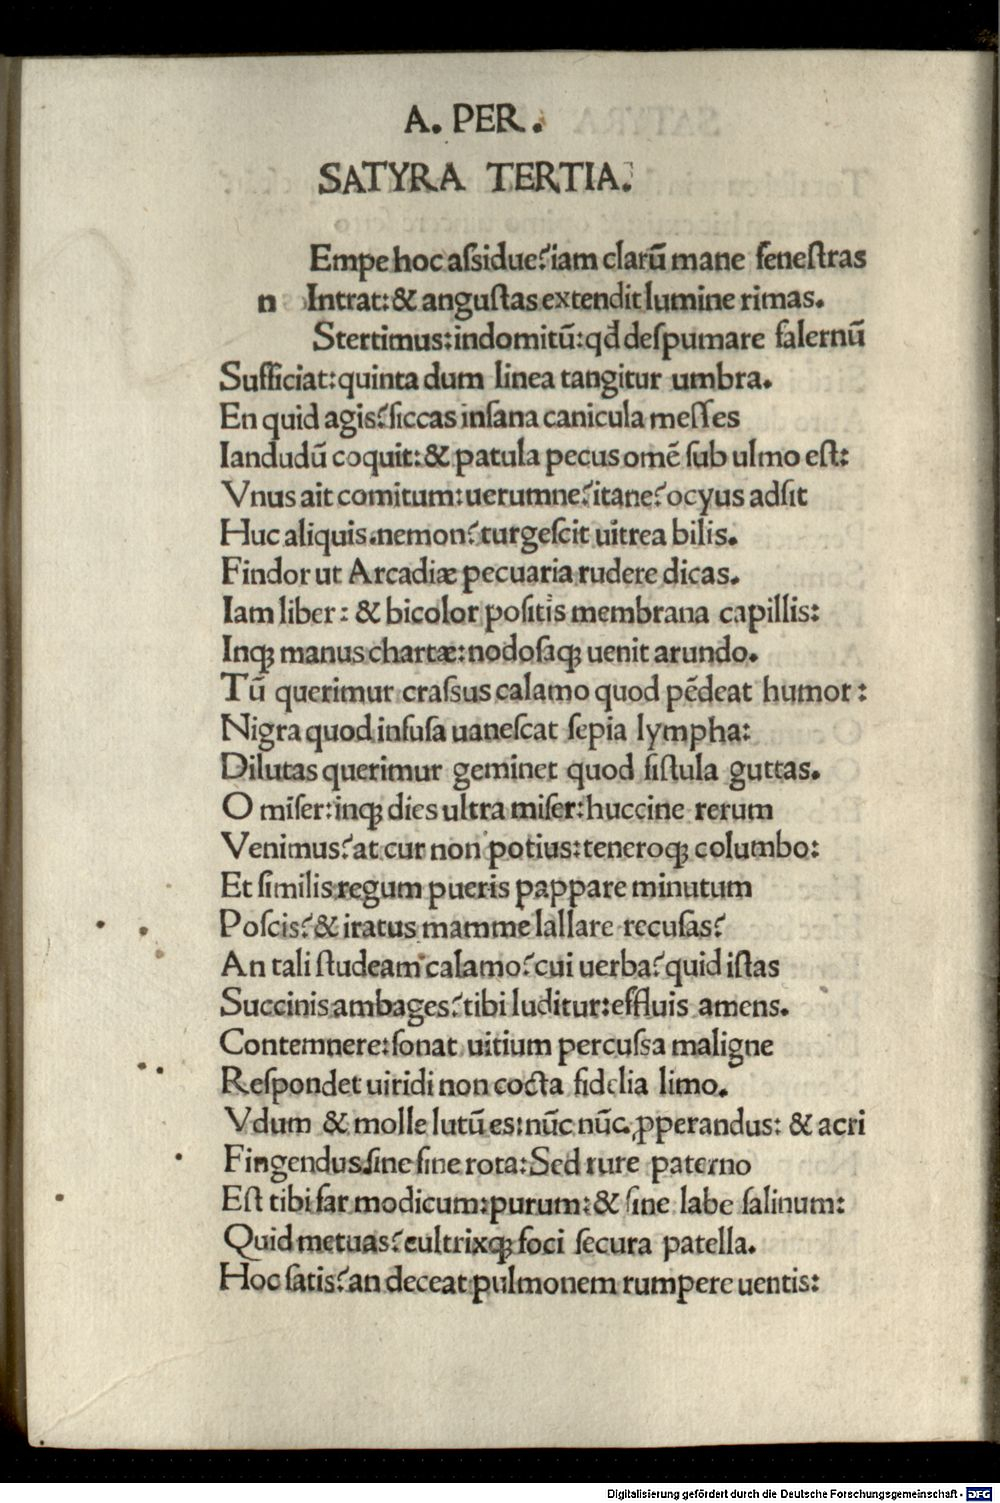 A. PER.
SATYRA TERTIA.
Empe hoc aſsidue? iam clarū mane feneſtras
n Intrat: & anguſtas extendit lumine rimas.
Stertimus: indomitū: qđ deſpumare falernū
Sufficiat: quinta dum linea tangitur umbra.
En quid agis? ſiccas inſana canicula meſſes
Iandudū coquit: & patula pecus omē ſub ulmo eſt:
Vnus ait comitum: uerumne? itane? ocyus adſit
Huc aliquis. nemon? turgeſcit uitrea bilis.
Findor ut Arcadiæ pecuaria rudere dicas.
Iam liber: & bicolor poſitis membrana capillis:
Inqꝫ manus chartæ: nodoſaqꝫ uenit arundo.
Tū querimur craſsus calamo quod pēdeat humor:
Nigra quod infuſa uaneſcat ſepia lympha:
Dilutas querimur geminet quod fiſtula guttas.
O miſer: inqꝫ dies ultra miſer: huccine rerum
Venimus? at cur non potius: teneroqꝫ columbo:
Et ſimilis regum pueris pappare minutum
Poſcis? & iratus mamme lallare recuſas?
An tali ſtudeam calamo? cui uerba? quid iſtas
Succinis ambages? tibi luditur: effluis amens.
Contemnere: ſonat uitium percuſsa maligne
Reſpondet uiridi non cocta fidelia limo.
Vdum & molle lutū es: nūc nūc ꝓperandus: & acri
Fingendus ſine fine rota: Sed rure paterno
Eſt tibi far modicum: purum: & ſine labe ſalinum:
Quid metuas? cultrixqꝫ foci ſecura patella.
Hoc ſatis? an deceat pulmonem rumpere uentis:
Digitalisierung gefördert durch die Deutsche Forschungsgemeinschaft - DFG